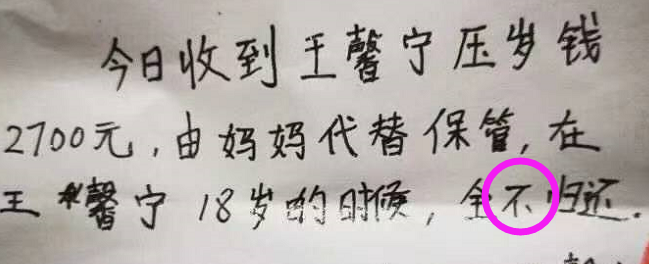 今日收到王馨宁压岁钱
2700元,由妈妈代替保管,在
王馨宁18岁的时候,全不归还.